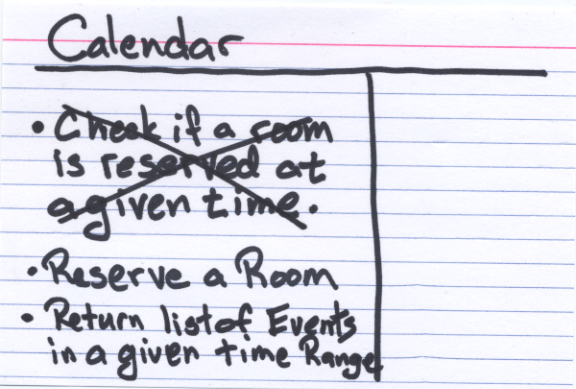 Calendar
• Check if a room
is reserved at
a given time.
• Reserve a Room
• Return list of Events
in a given time Range